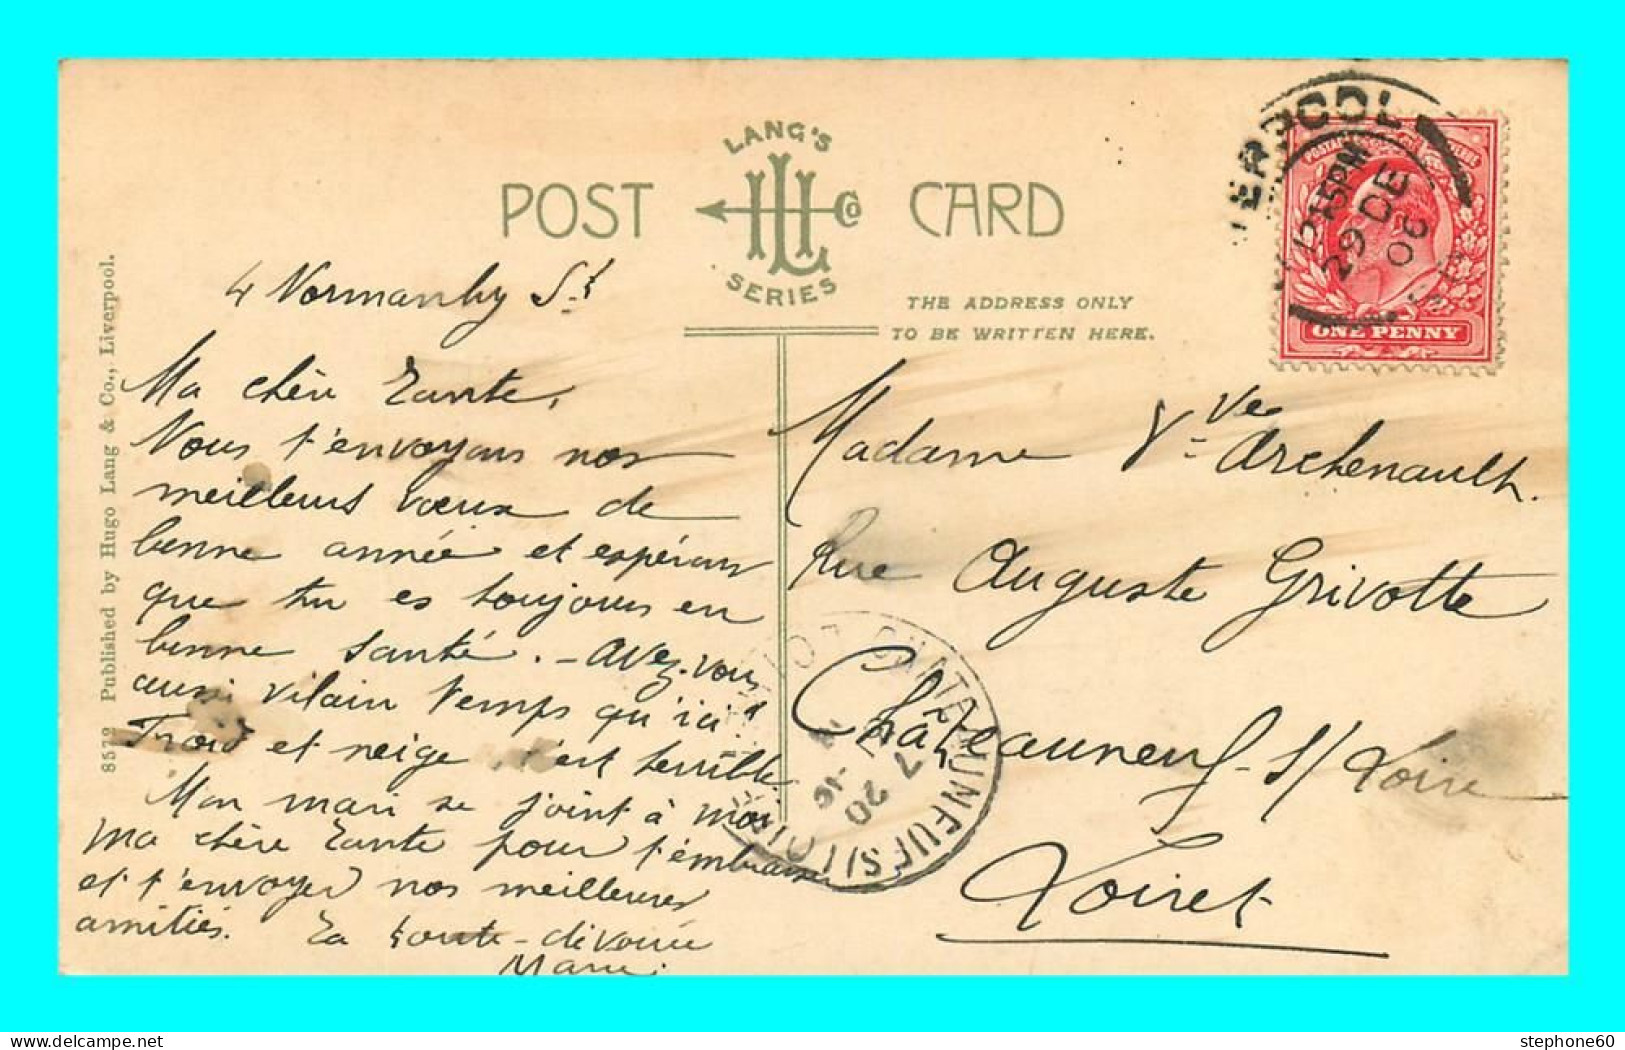 LANG'S
POST CARD
SERIES
THE ADDRESS ONLY
TO BE WRITTEN HERE.
8572 Published by Hugo Lang & Co., Liverpool.
4 Normanby St
Ma chère Tante,
Nous t'envoyons nos
meilleurs vœux de
bonne année et espérons
que tu es toujours en
bonne santé. - Avez-vous
aussi vilain temps qu'ici ?
Froid et neige c'est terrible
Mon mari se joint à moi
ma chère Tante pour t'embrasser
et t'envoyer nos meilleures
amitiés. Ta toute-dévouée
Marie.
Madame Vve Archenault.
Rue Auguste Grivotte
Châteauneuf s/ Loire
Loiret
ERPOOL
12 15PM
29 DE
06
POSTAGE
ONE PENNY
CHATEAUNEUF S/LOIRE
LOIRET
stephone60